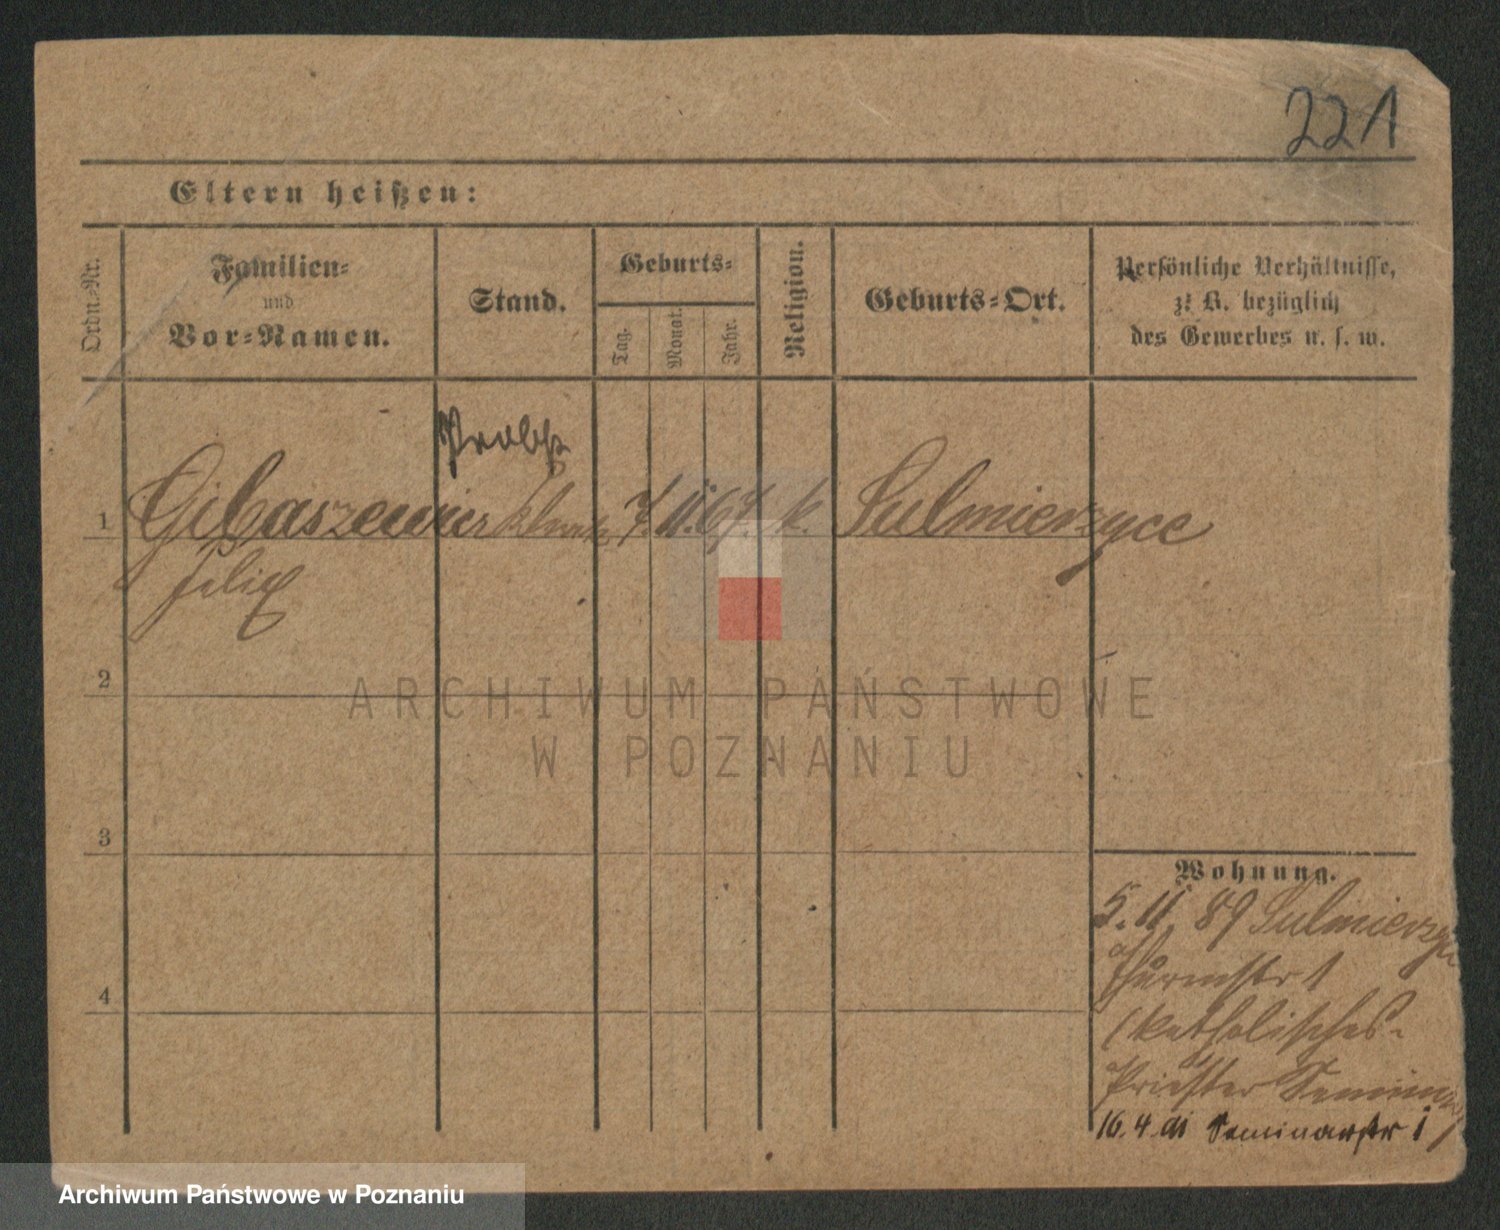 221
Eltern heißen:
Ordn.-Nr.
Familien-
und
Vor-Namen.
Stand.
Geburts-
Tag.
Monat.
Jahr.
Religion.
Geburts-Ort.
Persönliche Verhältnisse,
z. B. bezüglich
des Gewerbes u. s. w.
Probst
1 Gibaszewicz 7. 11. 67. k. Sulmierzyce
Felix
2
ARCHIWUM PAŃSTWOWE
W POZNANIU
3
Wohnung.
5. 11. 89 Sulmierzyce
1
4
(katholisches-
Priester Seminar)
16. 4. 91 Seminarstr 1
Archiwum Państwowe w Poznaniu